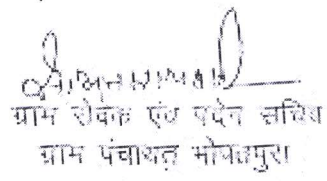 ग्राम सेवक एवं पदेन सचिव
ग्राम पंचायत भोपतपुरा